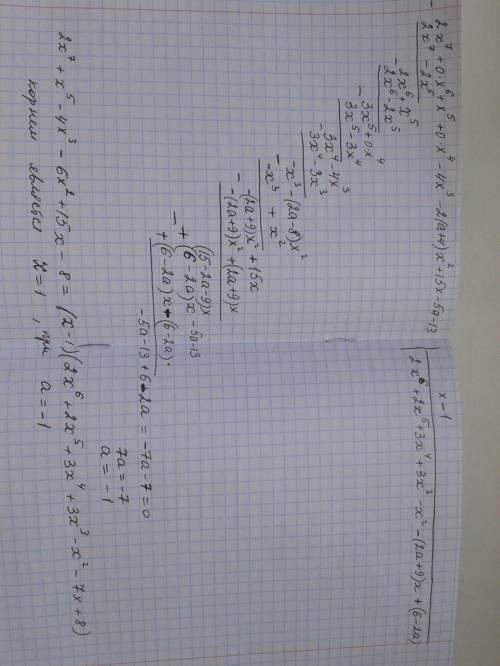 - 2x⁷ + 0·x⁶ + x⁵ + 0·x⁴ - 4x³ - 2(a+4)x² + 15x - 5a - 13 | x - 1
2x⁷ - 2x⁶
2x⁶ + 2x⁵ + 3x⁴ + 3x³ - x² - (2a+9)x + (6-2a)
- 2x⁶ + x⁵
2x⁶ - 2x⁵
- 3x⁵ + 0·x⁴
3x⁵ - 3x⁴
- 3x⁴ - 4x³
3x⁴ - 3x³
- -x³ - (2a-8)x²
-x³ + x²
- -(2a+9)x² + 15x
-(2a+9)x² + (2a+9)x
(15-2a-9)x
- + (6-2a)x - 5a-13
+ (6-2a)x - (6-2a).
-5a-13+6-2a = -7a-7=0
7a = -7
a = -1
2x⁷ + x⁵ - 4x³ - 6x² + 15x - 8 = (x-1)(2x⁶ + 2x⁵ + 3x⁴ + 3x³ - x² - 7x + 8)
корнем является x = 1, при a = -1